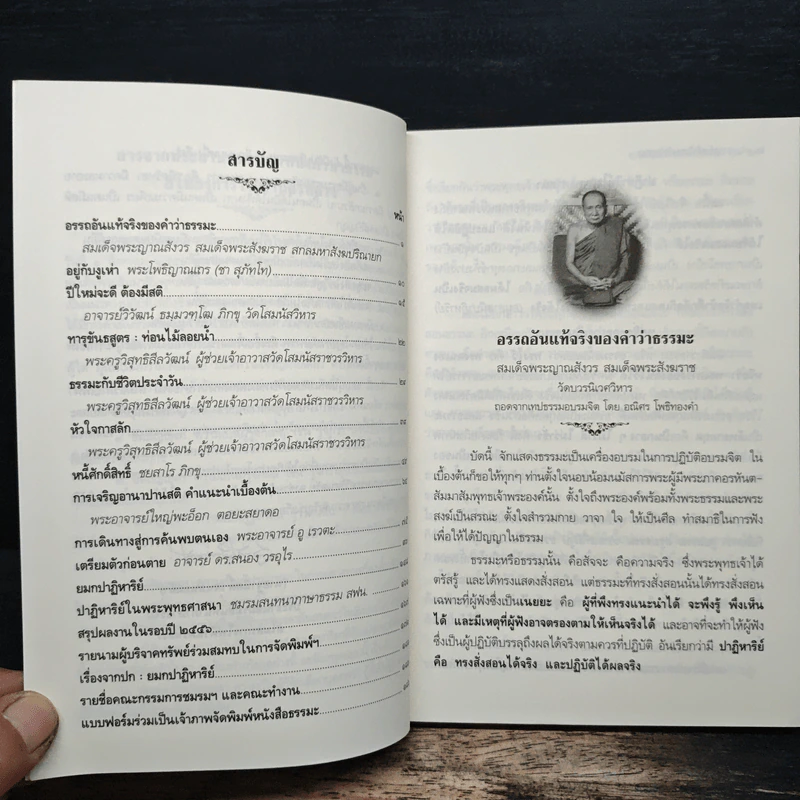 สารบัญ
หน้า
อรรถอันแท้จริงของคำว่าธรรมะ ๑
สมเด็จพระญาณสังวร สมเด็จพระสังฆราช สกลมหาสังฆปริณายก
อยู่กับงูเห่า พระโพธิญาณเถร (ชา สุภัทโท) ๑๐
ปีใหม่จะดี ต้องมีสติ ๑๕
อาจารย์วิวัฒน์ ธมฺมวฑฺโฒ ภิกขุ วัดโสมนัสวิหาร
ทารุขันธสูตร : ท่อนไม้ลอยน้ำ
พระครูวิสุทธิสีลวัฒน์ ผู้ช่วยเจ้าอาวาสวัดโสมนัสราชวรวิหาร
ธรรมะกับชีวิตประจำวัน
พระครูวิสุทธิสีลวัฒน์ ผู้ช่วยเจ้าอาวาสวัดโสมนัสราชวรวิหาร
หัวใจกาสลัก
พระครูวิสุทธิสีลวัฒน์ ผู้ช่วยเจ้าอาวาสวัดโสมนัสราชวรวิหาร
หนี้ศักดิ์สิทธิ์ ชยสาโร ภิกขุ
การเจริญอานาปานสติ คำแนะนำเบื้องต้น
พระอาจารย์ใหญ่พะอ็อก ตอยะสยาดอ
การเดินทางสู่การค้นพบตนเอง พระอาจารย์ อู เรวตะ
เตรียมตัวก่อนตาย อาจารย์ ดร.สนอง วรอุไร
ยมกปาฏิหาริย์
ปาฏิหาริย์ในพระพุทธศาสนา ชมรมสนทนาภาษาธรรม สฟน.
สรุปผลงานในรอบปี ๒๕๕๖
รายนามผู้บริจาคทรัพย์ร่วมสมทบในการจัดพิมพ์ฯ
เรื่องจากปก : ยมกปาฏิหาริย์
รายชื่อคณะกรรมการชมรมฯ และคณะทำงาน
แบบฟอร์มร่วมเป็นเจ้าภาพจัดพิมพ์หนังสือธรรมะ
อรรถอันแท้จริงของคำว่าธรรมะ
สมเด็จพระญาณสังวร สมเด็จพระสังฆราช
วัดบวรนิเวศวิหาร
ถอดจากเทปธรรมอบรมจิต โดย อณิศร โพธิทองคำ
บัดนี้ จักแสดงธรรมะเป็นเครื่องอบรมในการปฏิบัติอบรมจิต ใน
เบื้องต้นก็ขอให้ทุกๆ ท่านตั้งใจนอบน้อมนมัสการพระผู้มีพระภาคอรหันต-
สัมมาสัมพุทธเจ้าพระองค์นั้น ตั้งใจถึงพระองค์พร้อมทั้งพระธรรมและพระ
สงฆ์เป็นสรณะ ตั้งใจสำรวมกาย วาจา ใจ ให้เป็นศีล ทำสมาธิในการฟัง
เพื่อให้ได้ปัญญาในธรรม
ธรรมะหรือธรรมนั้น คือสัจจะ คือความจริง ซึ่งพระพุทธเจ้าได้
ตรัสรู้ และได้ทรงแสดงสั่งสอน แต่ธรรมะที่ทรงสั่งสอนนั้นได้ทรงสั่งสอน
เฉพาะที่ผู้ฟังซึ่งเป็นเนยยะ คือ ผู้ที่พึงทรงแนะนำได้ จะพึงรู้ พึงเห็น
ได้ และมีเหตุที่ผู้ฟังอาจตรองตามให้เห็นจริงได้ และอาจที่จะทำให้ผู้ฟัง
ซึ่งเป็นผู้ปฏิบัติบรรลุถึงผลได้จริงตามควรที่ปฏิบัติ อันเรียกว่ามี ปาฏิหาริย์
คือ ทรงสั่งสอนได้จริง และปฏิบัติได้ผลจริง